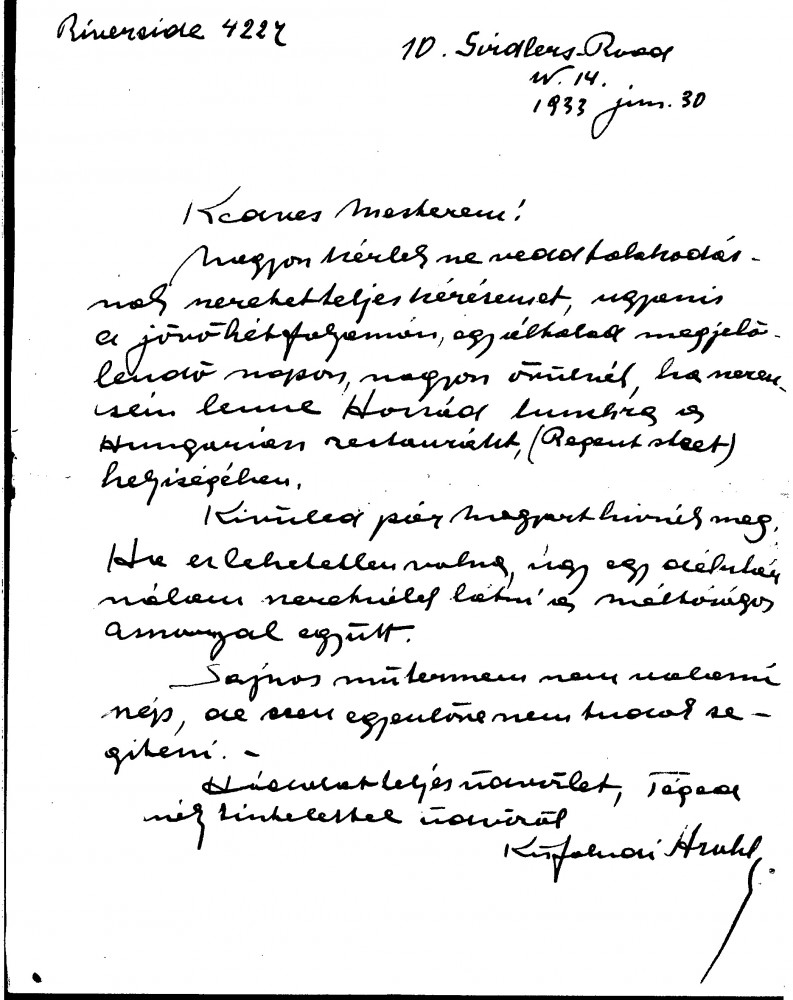 Riverside 4227
10. Girdlers Road
W. 14.
1933 jun. 30
Kedves Mesterem!
Nagyon kérlek ne vedd tolakodás-
nak szeretetteljes kérésemet, ugyanis
a jövő hét folyamán, egy általad megjelö-
lendő napon, nagyon örülnék, ha szeren-
csém lenne Hozzád lunchre a
Hungarian restauránt, (Regent street)
helyiségében.
Kivüled pár magyart hivnék meg.
Ha ez lehetetlen volna, úgy egy délután
nálam szeretnélek látni a méltóságos
Asszonnyal együtt.
Sajnos műtermem nem valami
szép, de ezen egyenlőre nem tudok se-
giteni. -
Hódolatteljes üdvözlet, Téged
sok tisztelettel üdvözöl